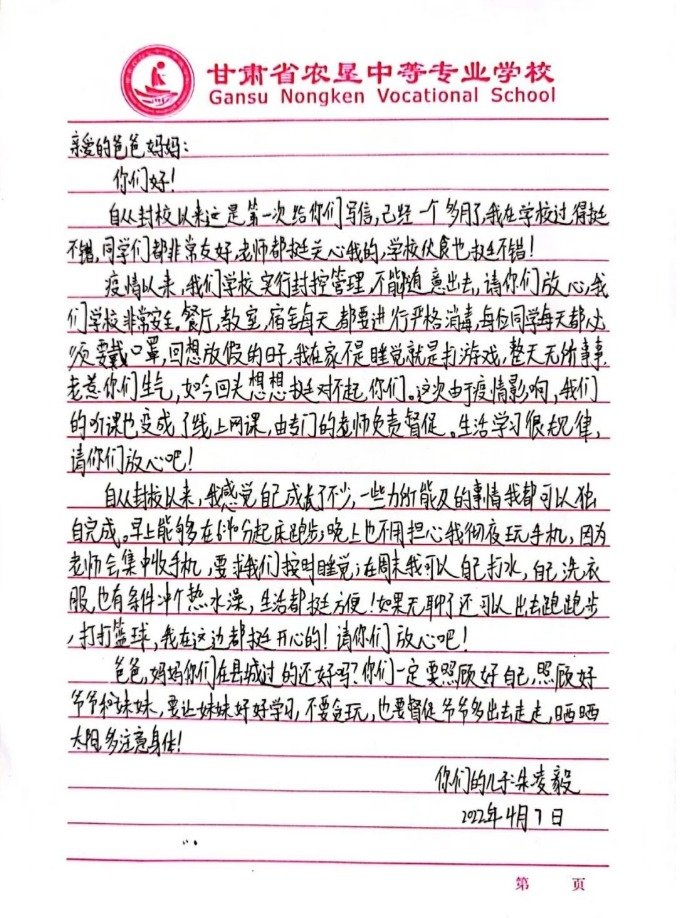 甘肃省农垦中等专业学校
Gansu Nongken Vocational School
亲爱的爸爸妈妈：
你们好！
自从封校以来这是第一次给你们写信，已经一个多月了，我在学校过得挺
不错，同学们都非常友好，老师都挺关心我的，学校伙食也挺不错！
疫情以来，我们学校实行封控管理，不能随意出去，请你们放心，我
们学校非常安全。餐厅，教室，宿舍每天都要进行严格消毒，每位同学每天都必
须要戴口罩，回想放假的日子，我在家不是睡觉就是打游戏，整天无所事事，
老惹你们生气，如今回头想想挺对不起你们。这次由于疫情影响，我们
的听课也变成了线上网课，由专门的老师负责督促。生活学习很规律，
请你们放心吧！
自从封校以来，我感觉自己成长了不少，一些力所能及的事情我都可以独
自完成。早上能够在6:40分起床跑步，晚上也不用担心我彻夜玩手机，因为
老师会集中收手机，要求我们按时睡觉；在周末我可以自己打水，自己洗衣
服，也有条件冲个热水澡，生活都挺方便！如果无聊了还可以出去跑跑步
，打打篮球，我在这边都挺开心的！请你们放心吧！
爸爸，妈妈你们在县城过的还好吗？你们一定要照顾好自己，照顾好
爷爷和妹妹，要让妹妹好好学习，不要贪玩，也要督促爷爷多出去走走，晒晒
太阳，多注意身体！
你们的儿子：朱凌毅
2022年4月7日
第 页